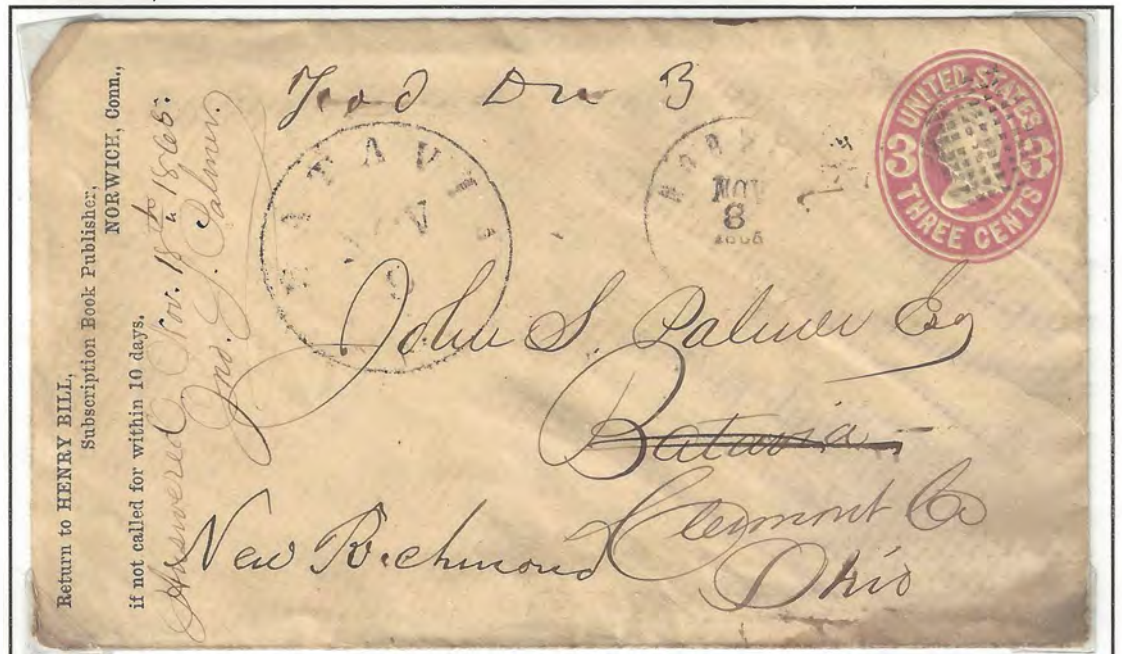 Return to HENRY BILL,
Subscription Book Publisher,
NORWICH, Conn.,
if not called for within 10 days.
Answered Nov. 18th 1865.
Jno. S. Palmer.
Due 3
BATAVIA
NOV
9
NOV
8
1865
UNITED STATES
3 3
THREE CENTS
John S. Palmer Esq
Batavia
Clermont Co
New Richmond
Ohio